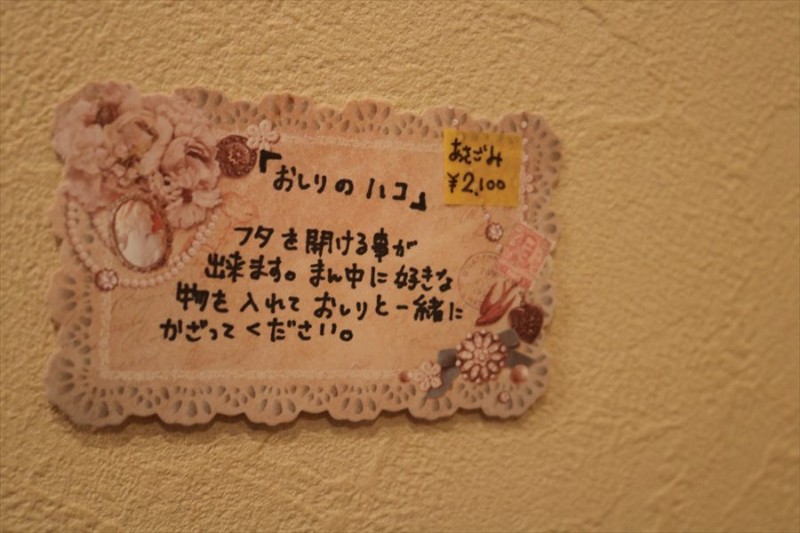 「おしりのハコ」
あさごみ
¥2,100
フタを開ける事が
出来ます。まん中に好きな
物を入れておしりと一緒に
かざってください。